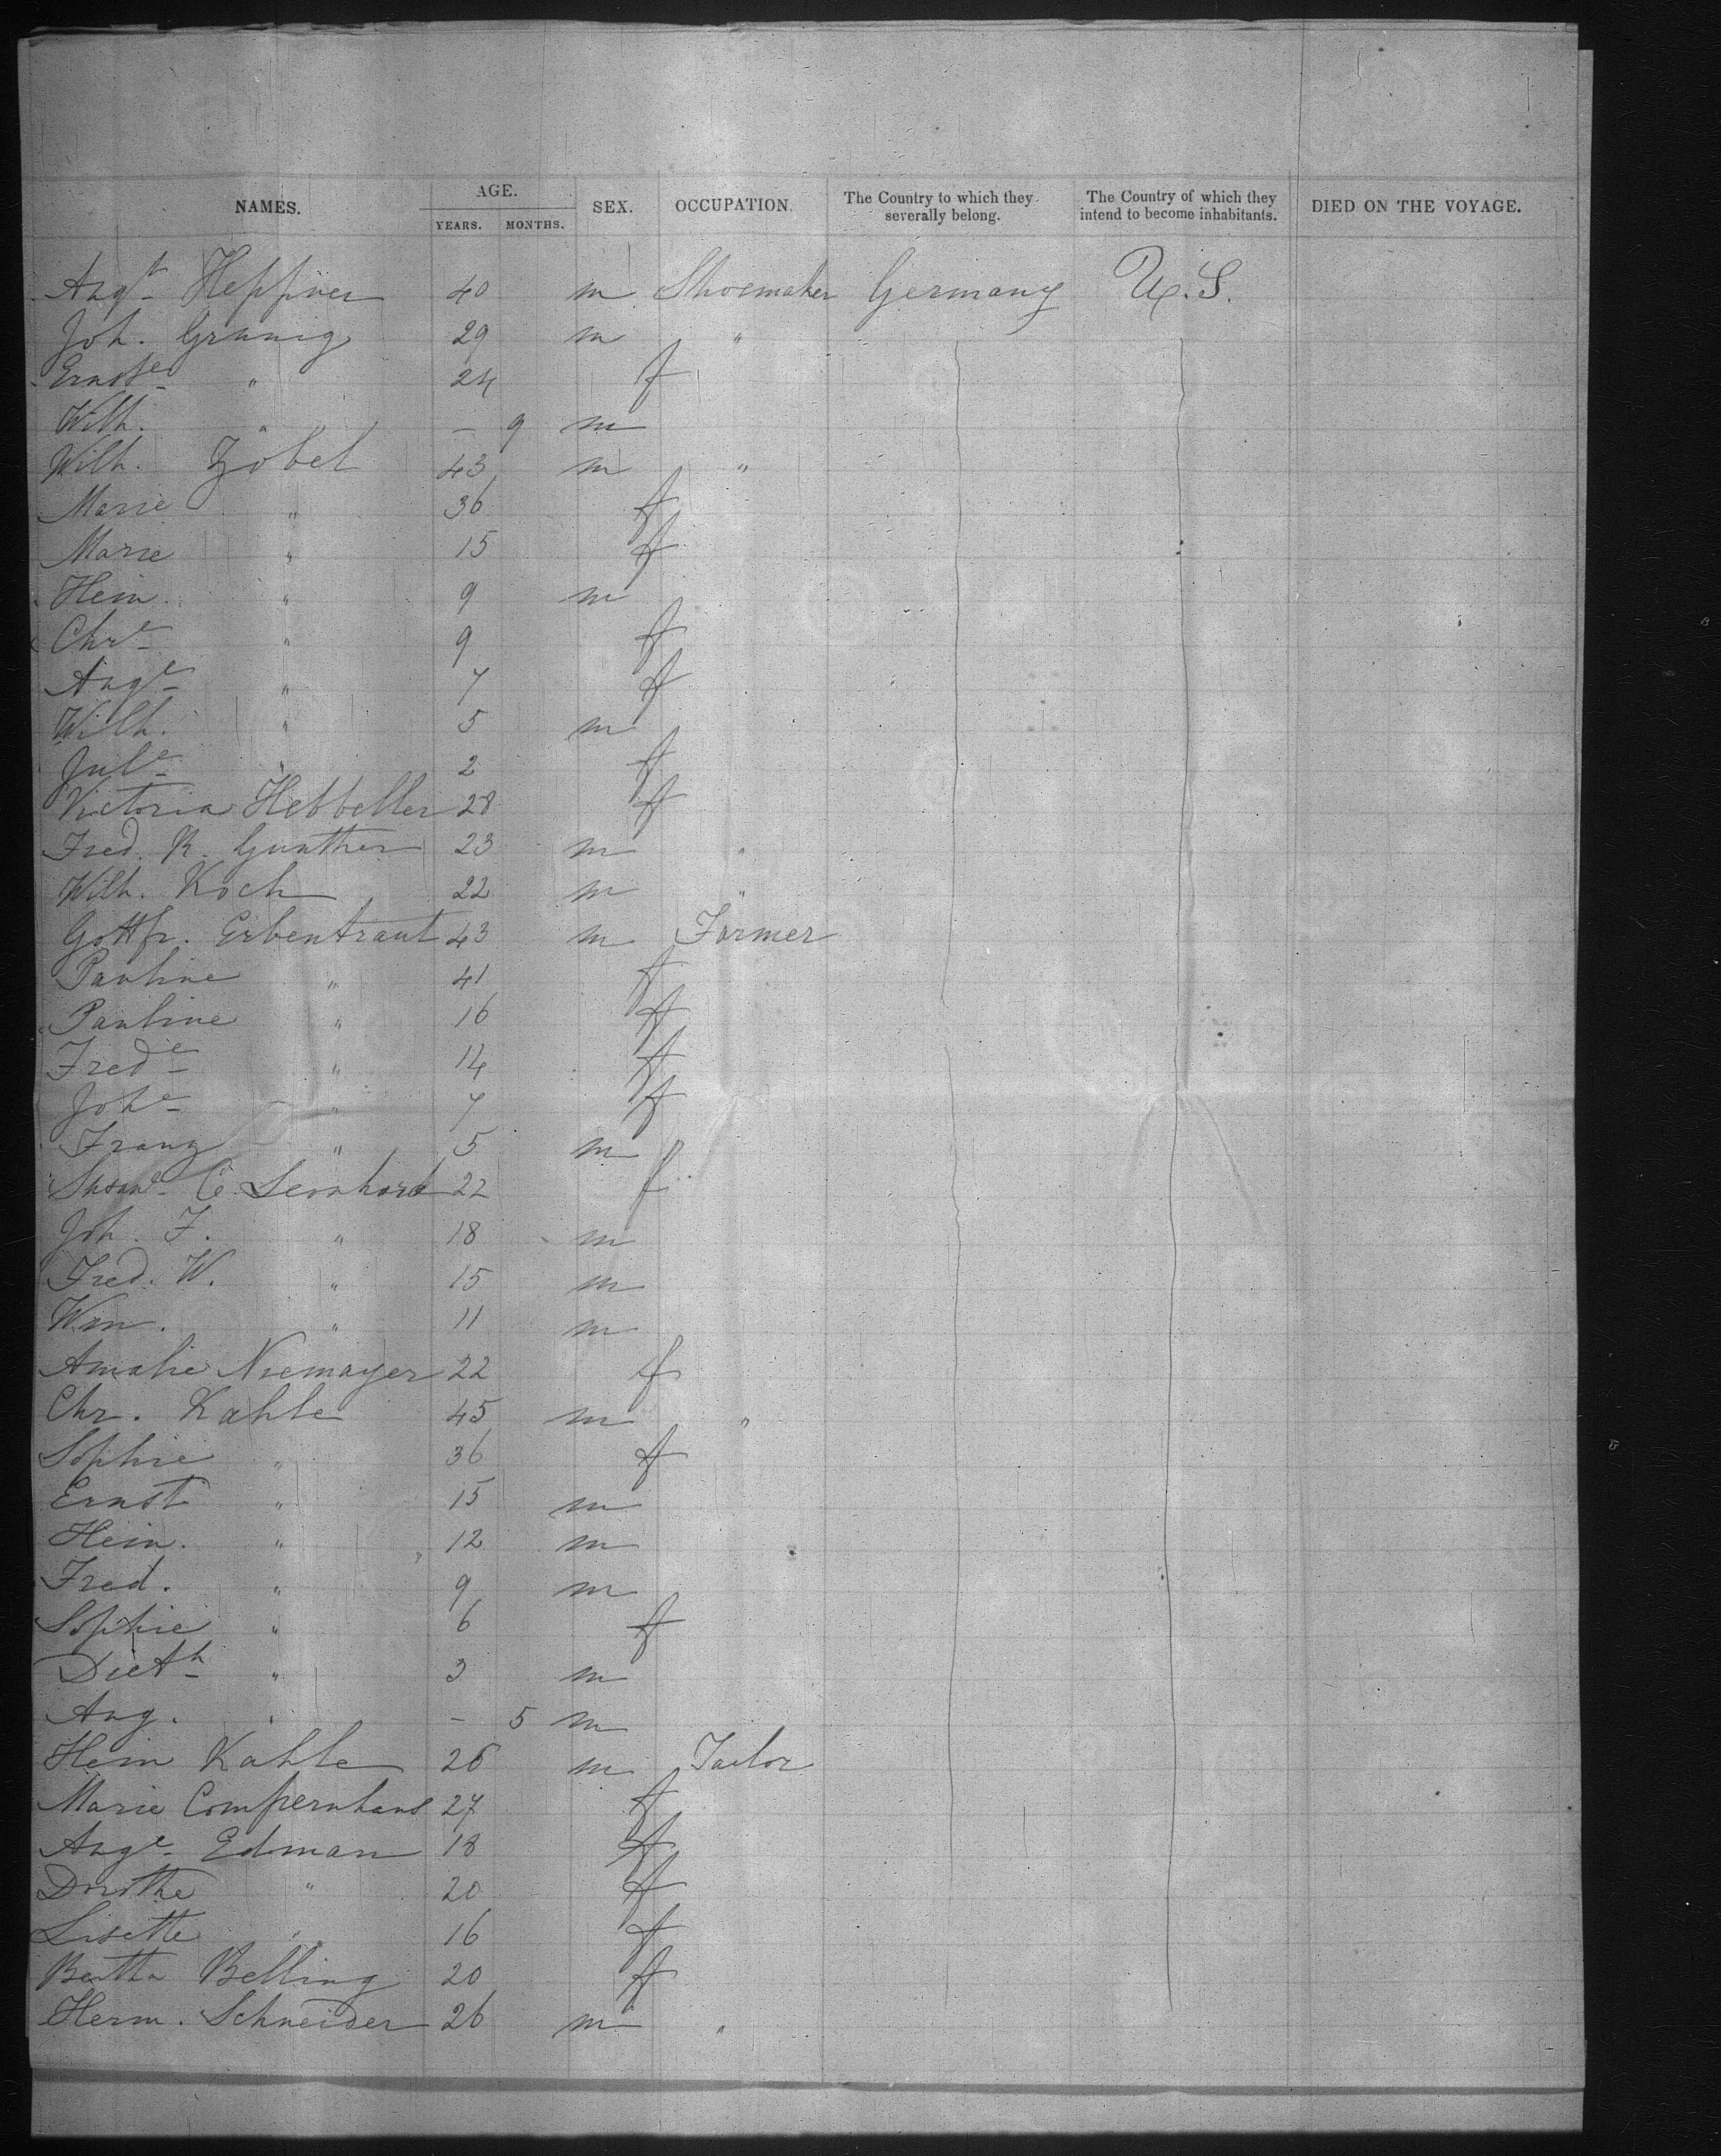 NAMES. AGE. YEARS. MONTHS. SEX. OCCUPATION. The Country to which they severally belong. The Country of which they intend to become inhabitants. DIED ON THE VOYAGE.
Augt Heppner 40 m Shoemaker Germany U.S.
Joh. Grunig 29 m "
Ernste " 24 f
Wilh. " – 9 m
Wilh. Zobel 43 m "
Marie " 36 f
Marie " 15 f
Hein. " 9 m
Chre " 9 f
Auge " 7 f
Wilh. " 5 m
Jule " 2 f
Victoria Hebbeller 28 f
Fred. R. Gunther 23 m "
Wilh. Koch 22 m "
Gottfr. Erbentraut 43 m Farmer
Pauline " 41 f
Pauline " 16 f
Frede " 14 f
Johe " 7 f
Franz " 5 m
C. 22 f
Joh. F. " 18 m
Fred. W. " 15 m
Wm. " 11 m
Amalie Niemayer 22 f
Chr. Kahle 45 m "
Sophie " 36 f
Ernst " 15 m
Hein. " 12 m
Fred. " 9 m
Sophie " 6 f
Dieth " 3 m
Aug. " – 5 m
Hein Kahle 26 m Tailor
Marie 27 f
Auge Edman 18 f
Dorothe " 20 f
Lisette " 16 f
Bertha Belling 20 f
Herm. Schneider 26 m "